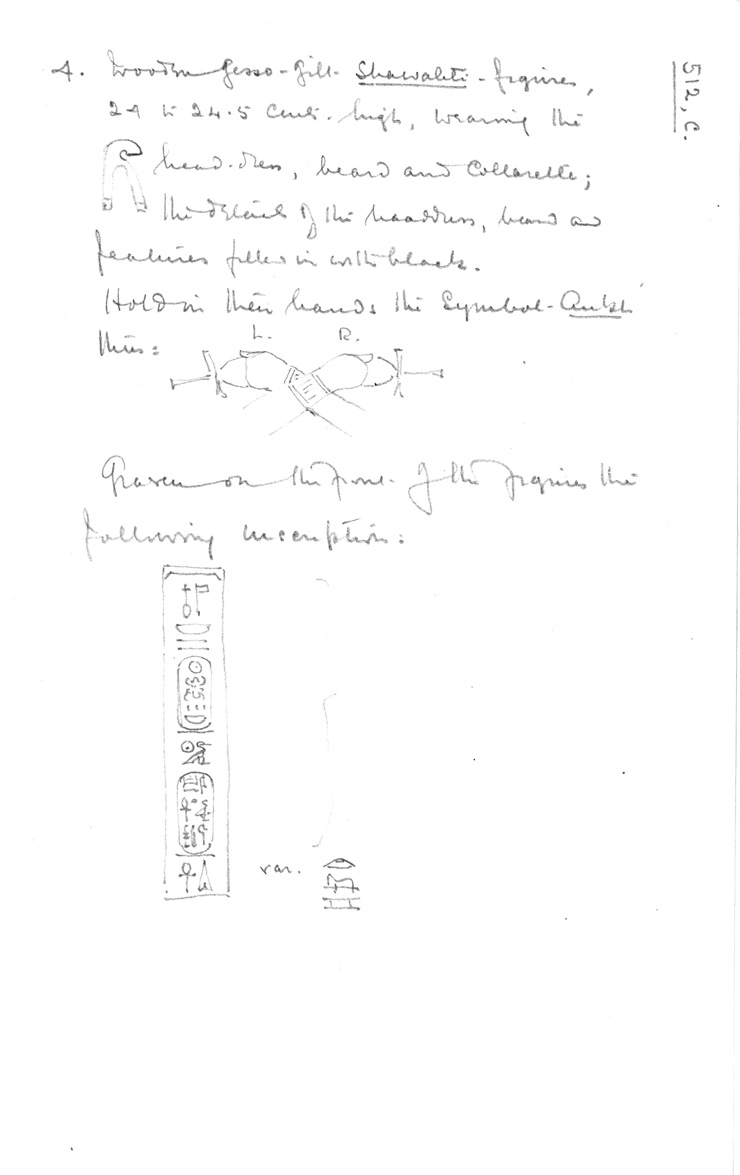 512, C.
4. Wooden gesso-gilt Shawabti-figures,
24 to 24.5 cent. high, wearing the
head-dress, beard and collarette;
the details of the headdress, beard and
features filled in with black.
Hold in their hands the symbol-Ankh
thus:
L. R.
Graven on the front of the figures the
following inscription:
var.